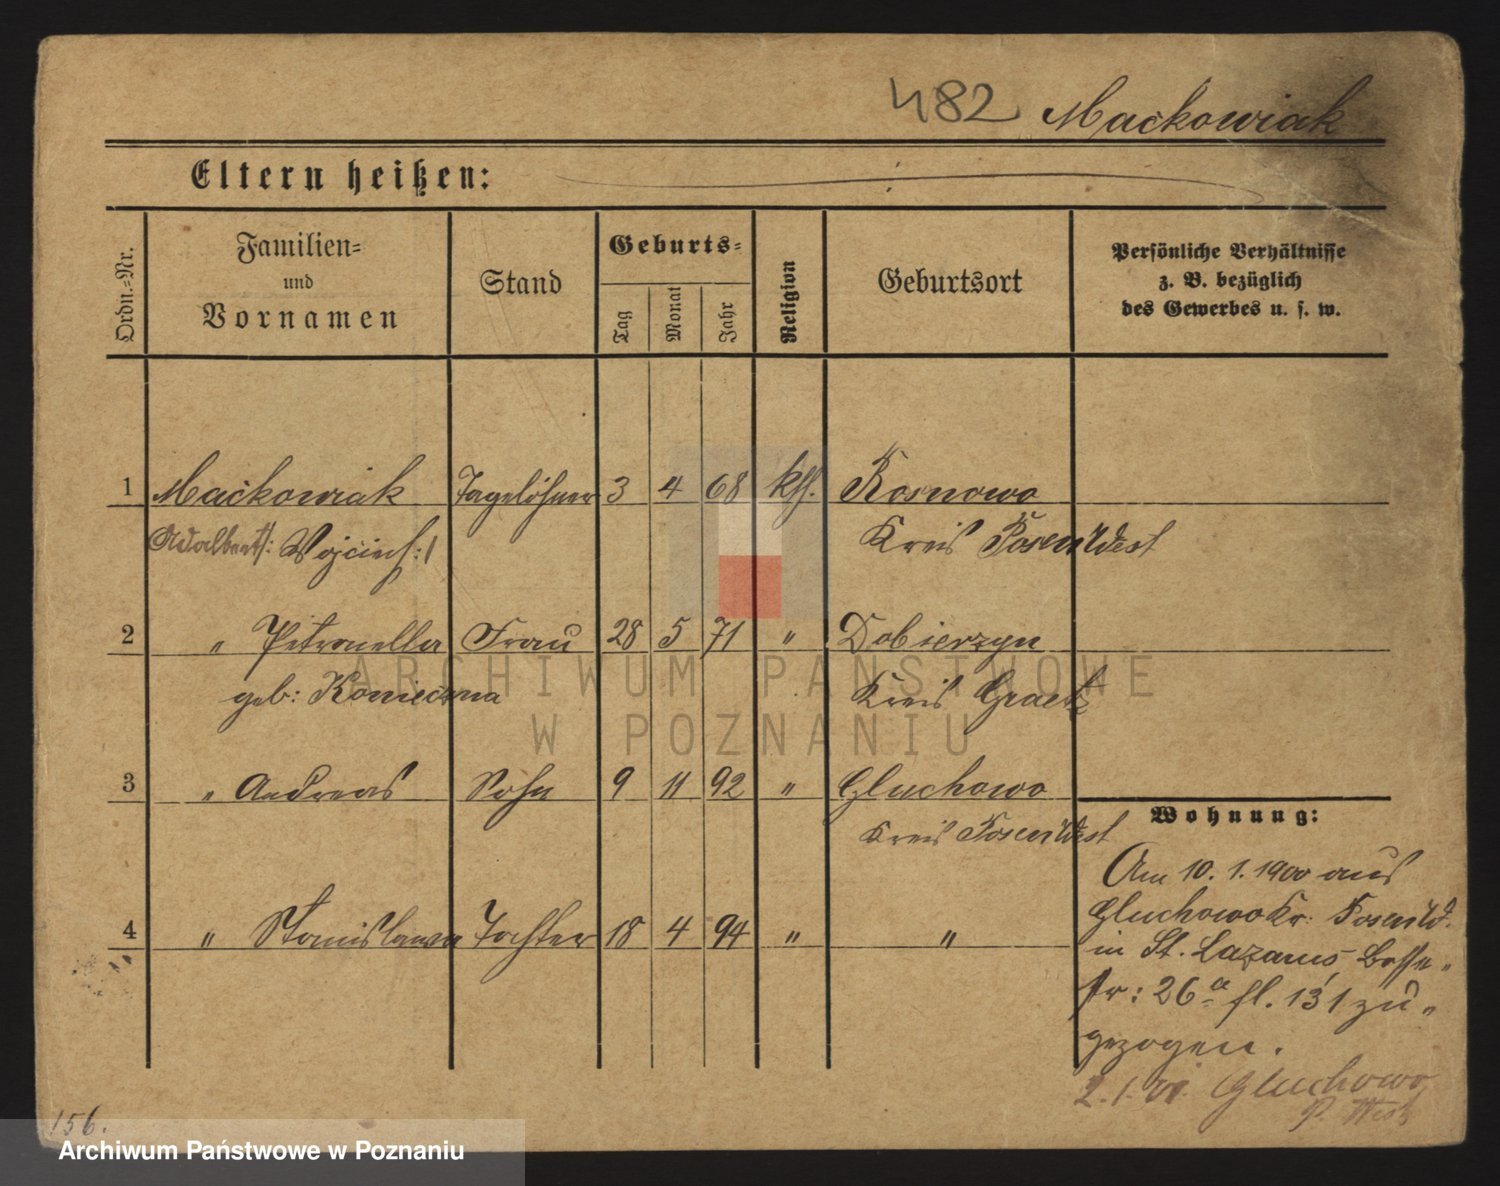 482 Mackowiak
Eltern heißen:
Ordn.-Nr.
Familien-
und
Vornamen
Stand
Geburts-
Tag
Monat
Jahr
Religion
Geburtsort
Persönliche Verhältnisse
z. B. bezüglich
des Gewerbes u. s. w.
1 Maćkowiak Tagelöhner 3 4 68 kth. Rosnowo
Adalbert /: Wojciech :/ Kreis Posen West
2 " Petronella Frau 28 5 71 " Dobierzyn
geb: Konieczna Kreis Graetz
3 " Andreas Sohn 9 11 92 " Gluchowo
Kreis Posen West
4 " Stanislawa Tochter 18 4 94 " "
Wohnung:
Am 10. 1. 1900 aus
Gluchowo Kr. Posen W.
in St. Lazarus,
str: 26a fl. 131 zu-
gezogen.
2. 1. 01. Gluchowo
P. West
156.
ARCHIWUM PAŃSTWOWE
W POZNANIU
Archiwum Państwowe w Poznaniu